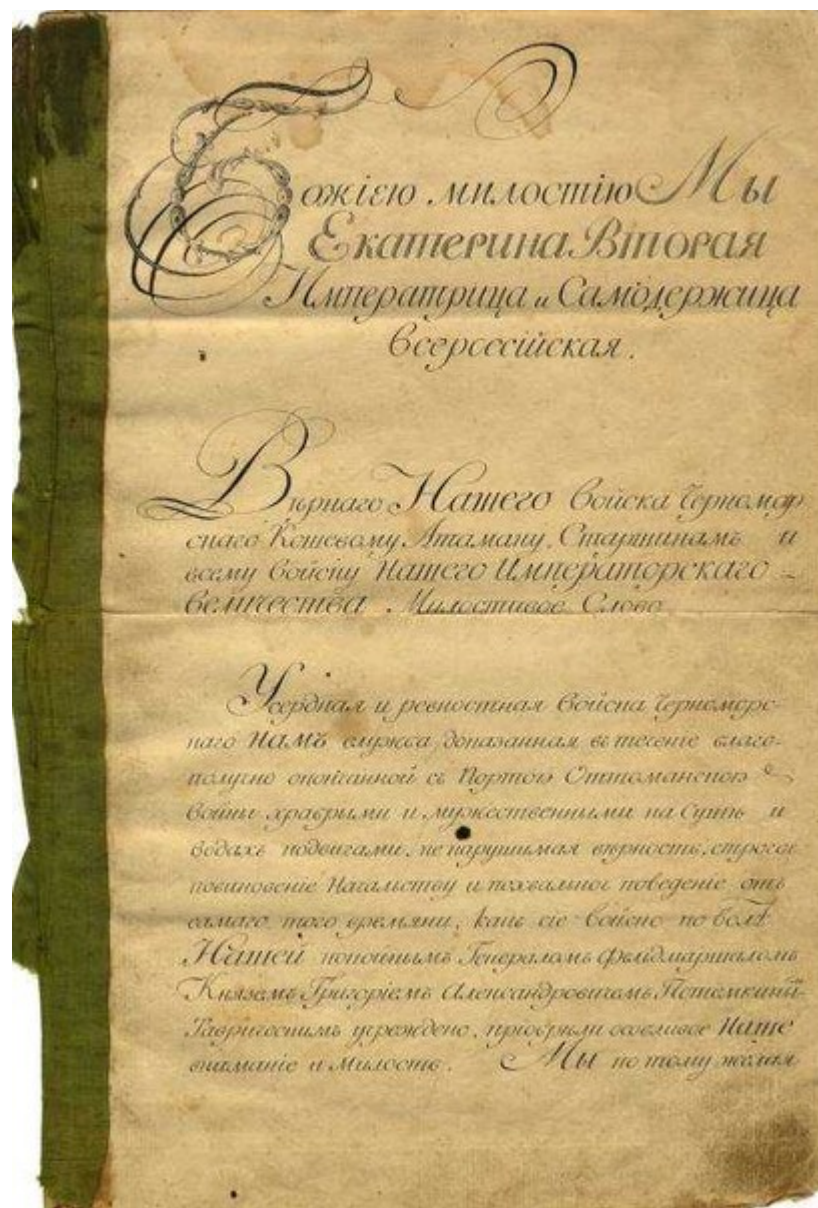 Божіею милостію Мы
Екатерина Вторая
Императрица и Самодержица
Всероссійская.
Вѣрнаго Нашего Войска Черномор
скаго Кошевому Атаману, Старшинамъ и
всему Войску Нашего Императорскаго
Величества Милостивое Слово
Усердная и ревностная Войска Черноморс-
каго Намъ служба, доказанная въ теченіе благо-
получно оконченной съ Портою Оттоманскою
войны храбрыми и мужественными на Сушѣ и
водахъ подвигами, ненарушимая вѣрность, строгое
повиновеніе Начальству и похвальное поведеніе отъ
самаго того времяни, какъ сіе войско по волѣ
Нашей покойнымъ Генераломъ Фелдмаршаломъ
Княземъ Григоріемъ Александровичемъ Потемкинымъ
Таврическимъ учреждено, пріобрѣли особливое Наше
вниманіе и Милость. Мы по тому желая